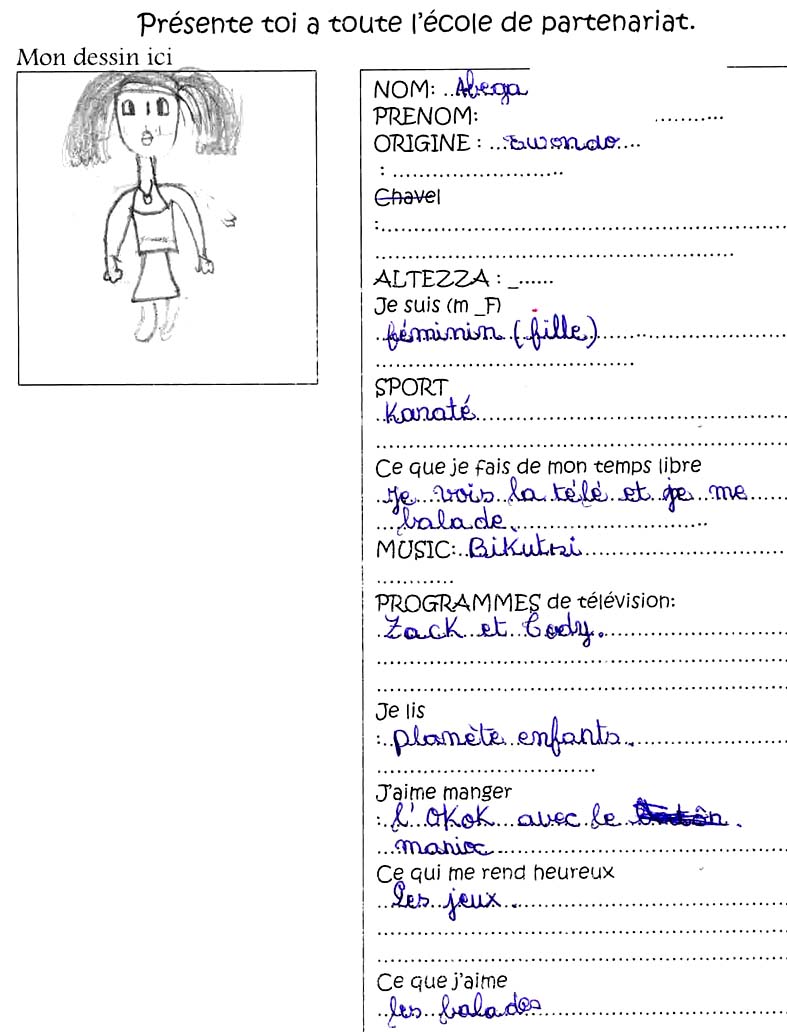 Présente toi a toute l'école de partenariat.
Mon dessin ici
NOM: ..Abega
PRENOM: ..........
ORIGINE : ...Ewondo....
: .........................
Chavel
:............................................................
.....................................................
ALTEZZA : _......
Je suis (m _F)
féminin (fille)
SPORT
Karaté
Ce que je fais de mon temps libre
Je vois la télé et je me
balade.
MUSIC: Bikutsi
PROGRAMMES de télévision:
Zack et Cody.
Je lis
: planète enfants.
J'aime manger
: l'okok avec le .
manioc
Ce qui me rend heureux
les jeux.
Ce que j'aime
les balades